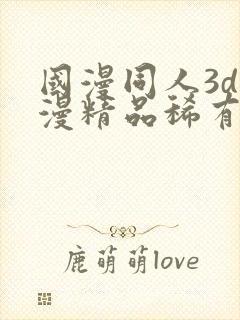 國漫同人3d
漫精品稀有
鹿萌萌love